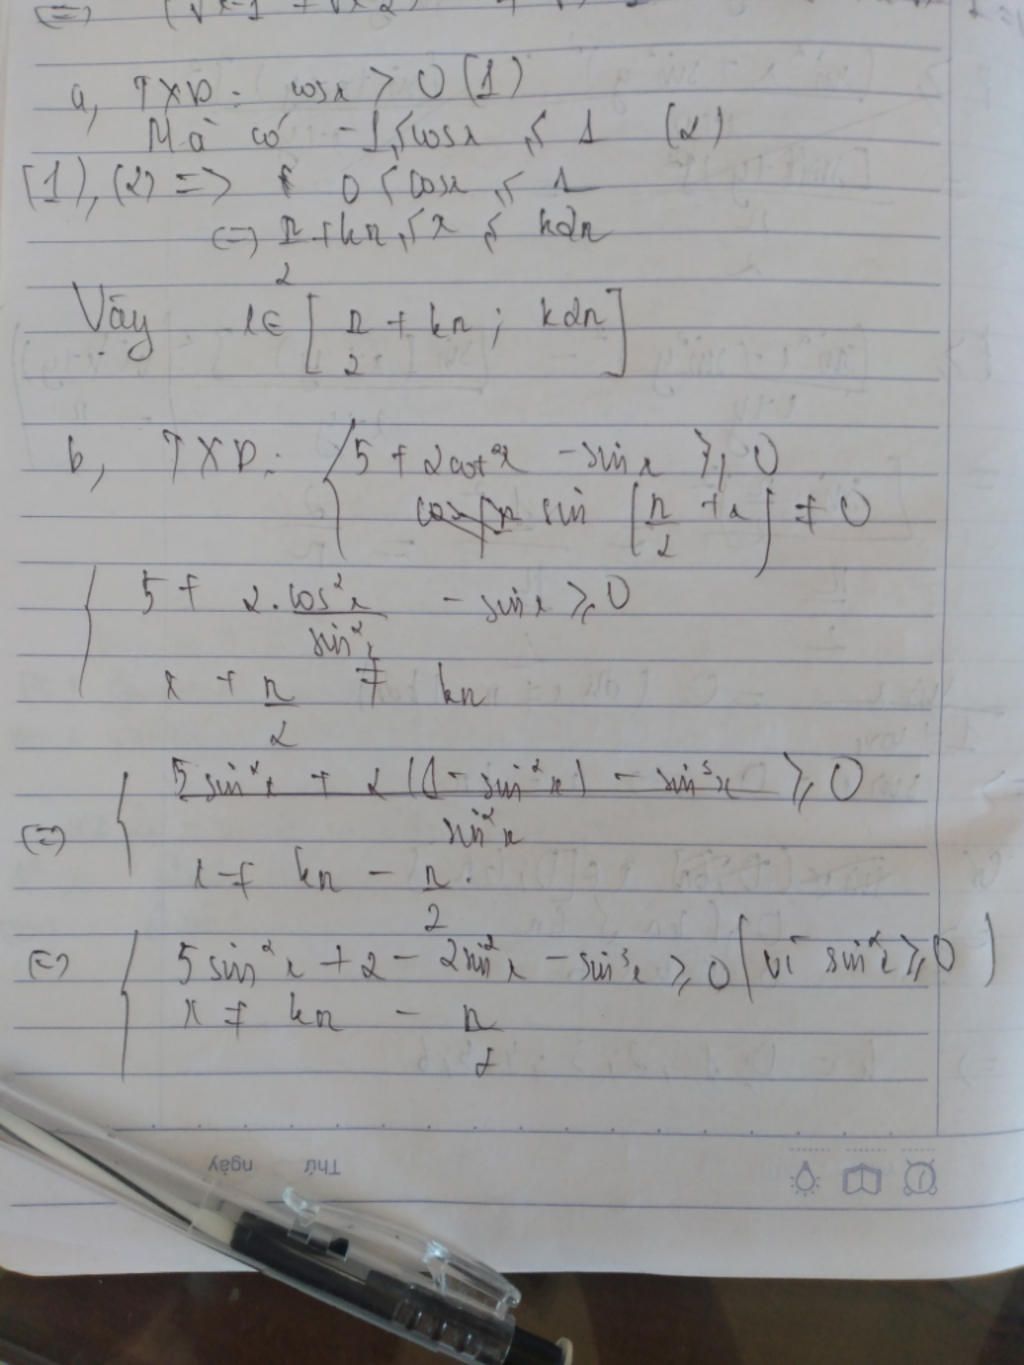 (√x-1 + √x-2)
a, TXD: cosx > 0 (1)
Mà có -1 ≤ cosx ≤ 1 (2)
(1), (2) => 0 < cosx ≤ 1
(=) π/2 + kπ ≤ x ≤ k2π
Vậy x ∈ [π/2 + kπ ; k2π]
b, TXD: { 5 + 2cot²x - sinx ≥ 0
sin (π/2 + x) ≠ 0
{ 5 + 2.cos²x/sin²x - sinx ≥ 0
x + π/2 ≠ kπ
(=) { (5sin²x + 2(1-sin²x) - sin³x)/sin²x ≥ 0
x ≠ kπ - π/2.
(=) { 5sin²x + 2 - 2sin²x - sin³x ≥ 0 (vì sin²x ≥ 0)
x ≠ kπ - π/2
Thứ ngày